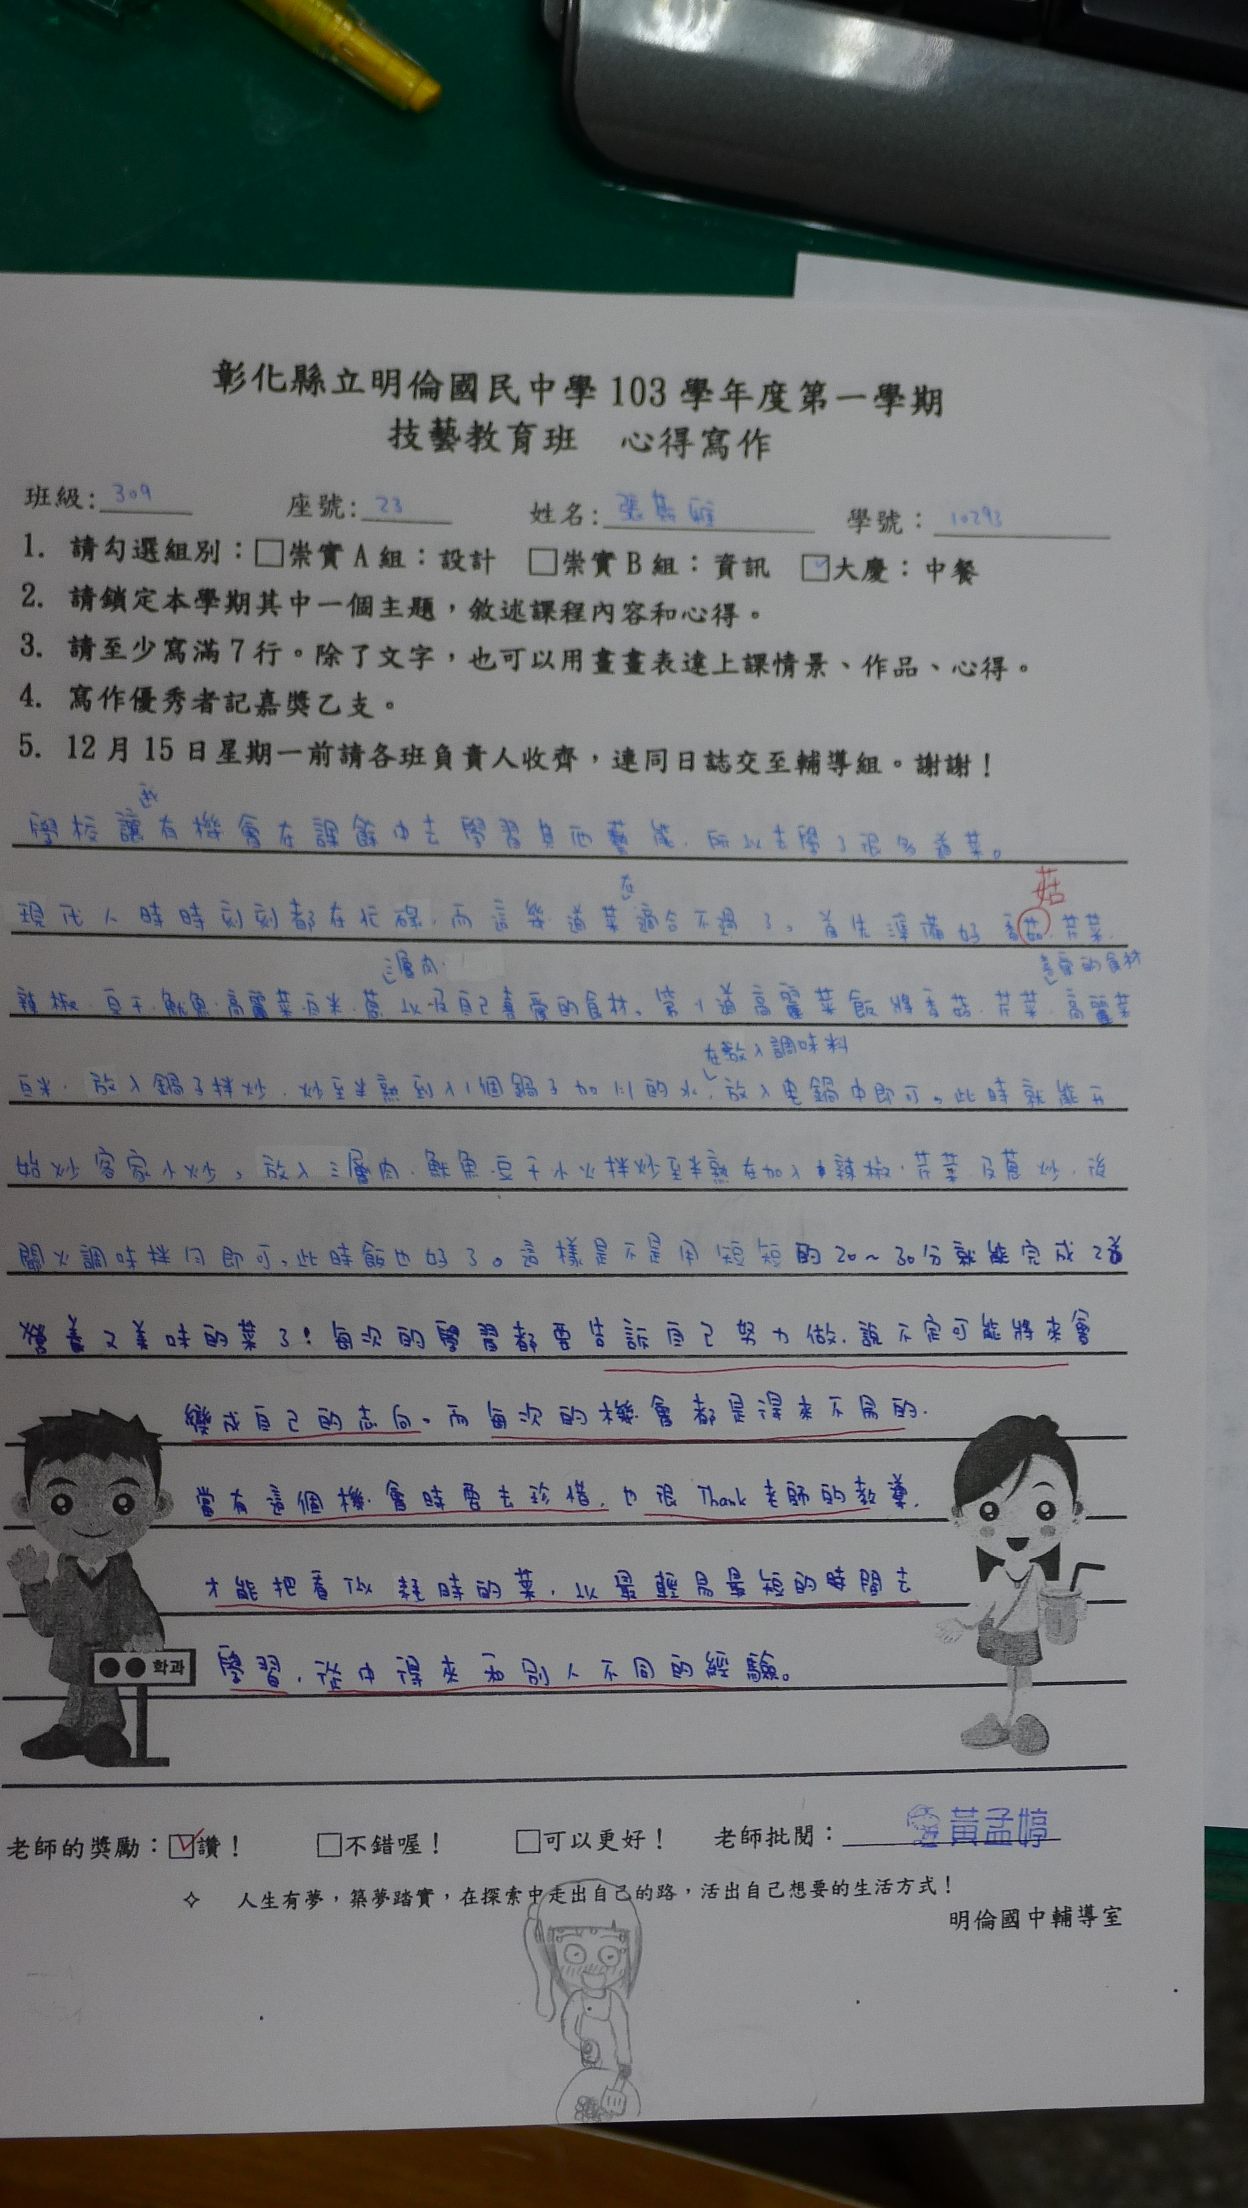 彰化縣立明倫國民中學 103 學年度第一學期
技藝教育班　心得寫作
班級: 309　座號: 23　姓名: 張　學號： 10293
1. 請勾選組別：□崇實 A 組：設計　□崇實 B 組：資訊　☑大慶：中餐
2. 請鎖定本學期其中一個主題，敘述課程內容和心得。
3. 請至少寫滿 7 行。除了文字，也可以用畫畫表達上課情景、作品、心得。
4. 寫作優秀者記嘉獎乙支。
5. 12 月 15 日星期一前請各班負責人收齊，連同日誌交至輔導組。謝謝！
我
學校讓有機會在課餘中去學習其他藝能，所以去學了很多道菜。
在
菇
現代人時時刻刻都在忙碌，而這幾道菜適合不過了。首先準備好香菇、芹菜、
三層肉、
喜愛的食材
辣椒、豆干、魷魚、高麗菜、白米、蔥、以及自己喜愛的食材。第1道高麗菜飯將香菇、芹菜、高麗菜
在放入調味料
白米，放入鍋子拌炒，炒至半熟到入1個鍋子加1:1的水，放入電鍋中即可。此時就能開
始炒客家小炒。放入三層肉、魷魚、豆干小火拌炒至半熟在加入辣椒、芹菜及蔥炒，後
關火調味拌勻即可。此時飯也好了。這樣是不是用短短的20～30分就能完成2道
營養又美味的菜了！每次的學習都要告訴自己努力做，說不定可能將來會
變成自己的志向。而每次的機會都是得來不易的，
當有這個機會時要去珍惜，也很Thank老師的教導，
才能把看似耗時的菜，以最輕易最短的時間去
學習，從中得來和別人不同的經驗。
학과
老師的獎勵：☑讚！　□不錯喔！　□可以更好！　老師批閱： 黃孟婷
✧ 人生有夢，築夢踏實，在探索中走出自己的路，活出自己想要的生活方式！
明倫國中輔導室